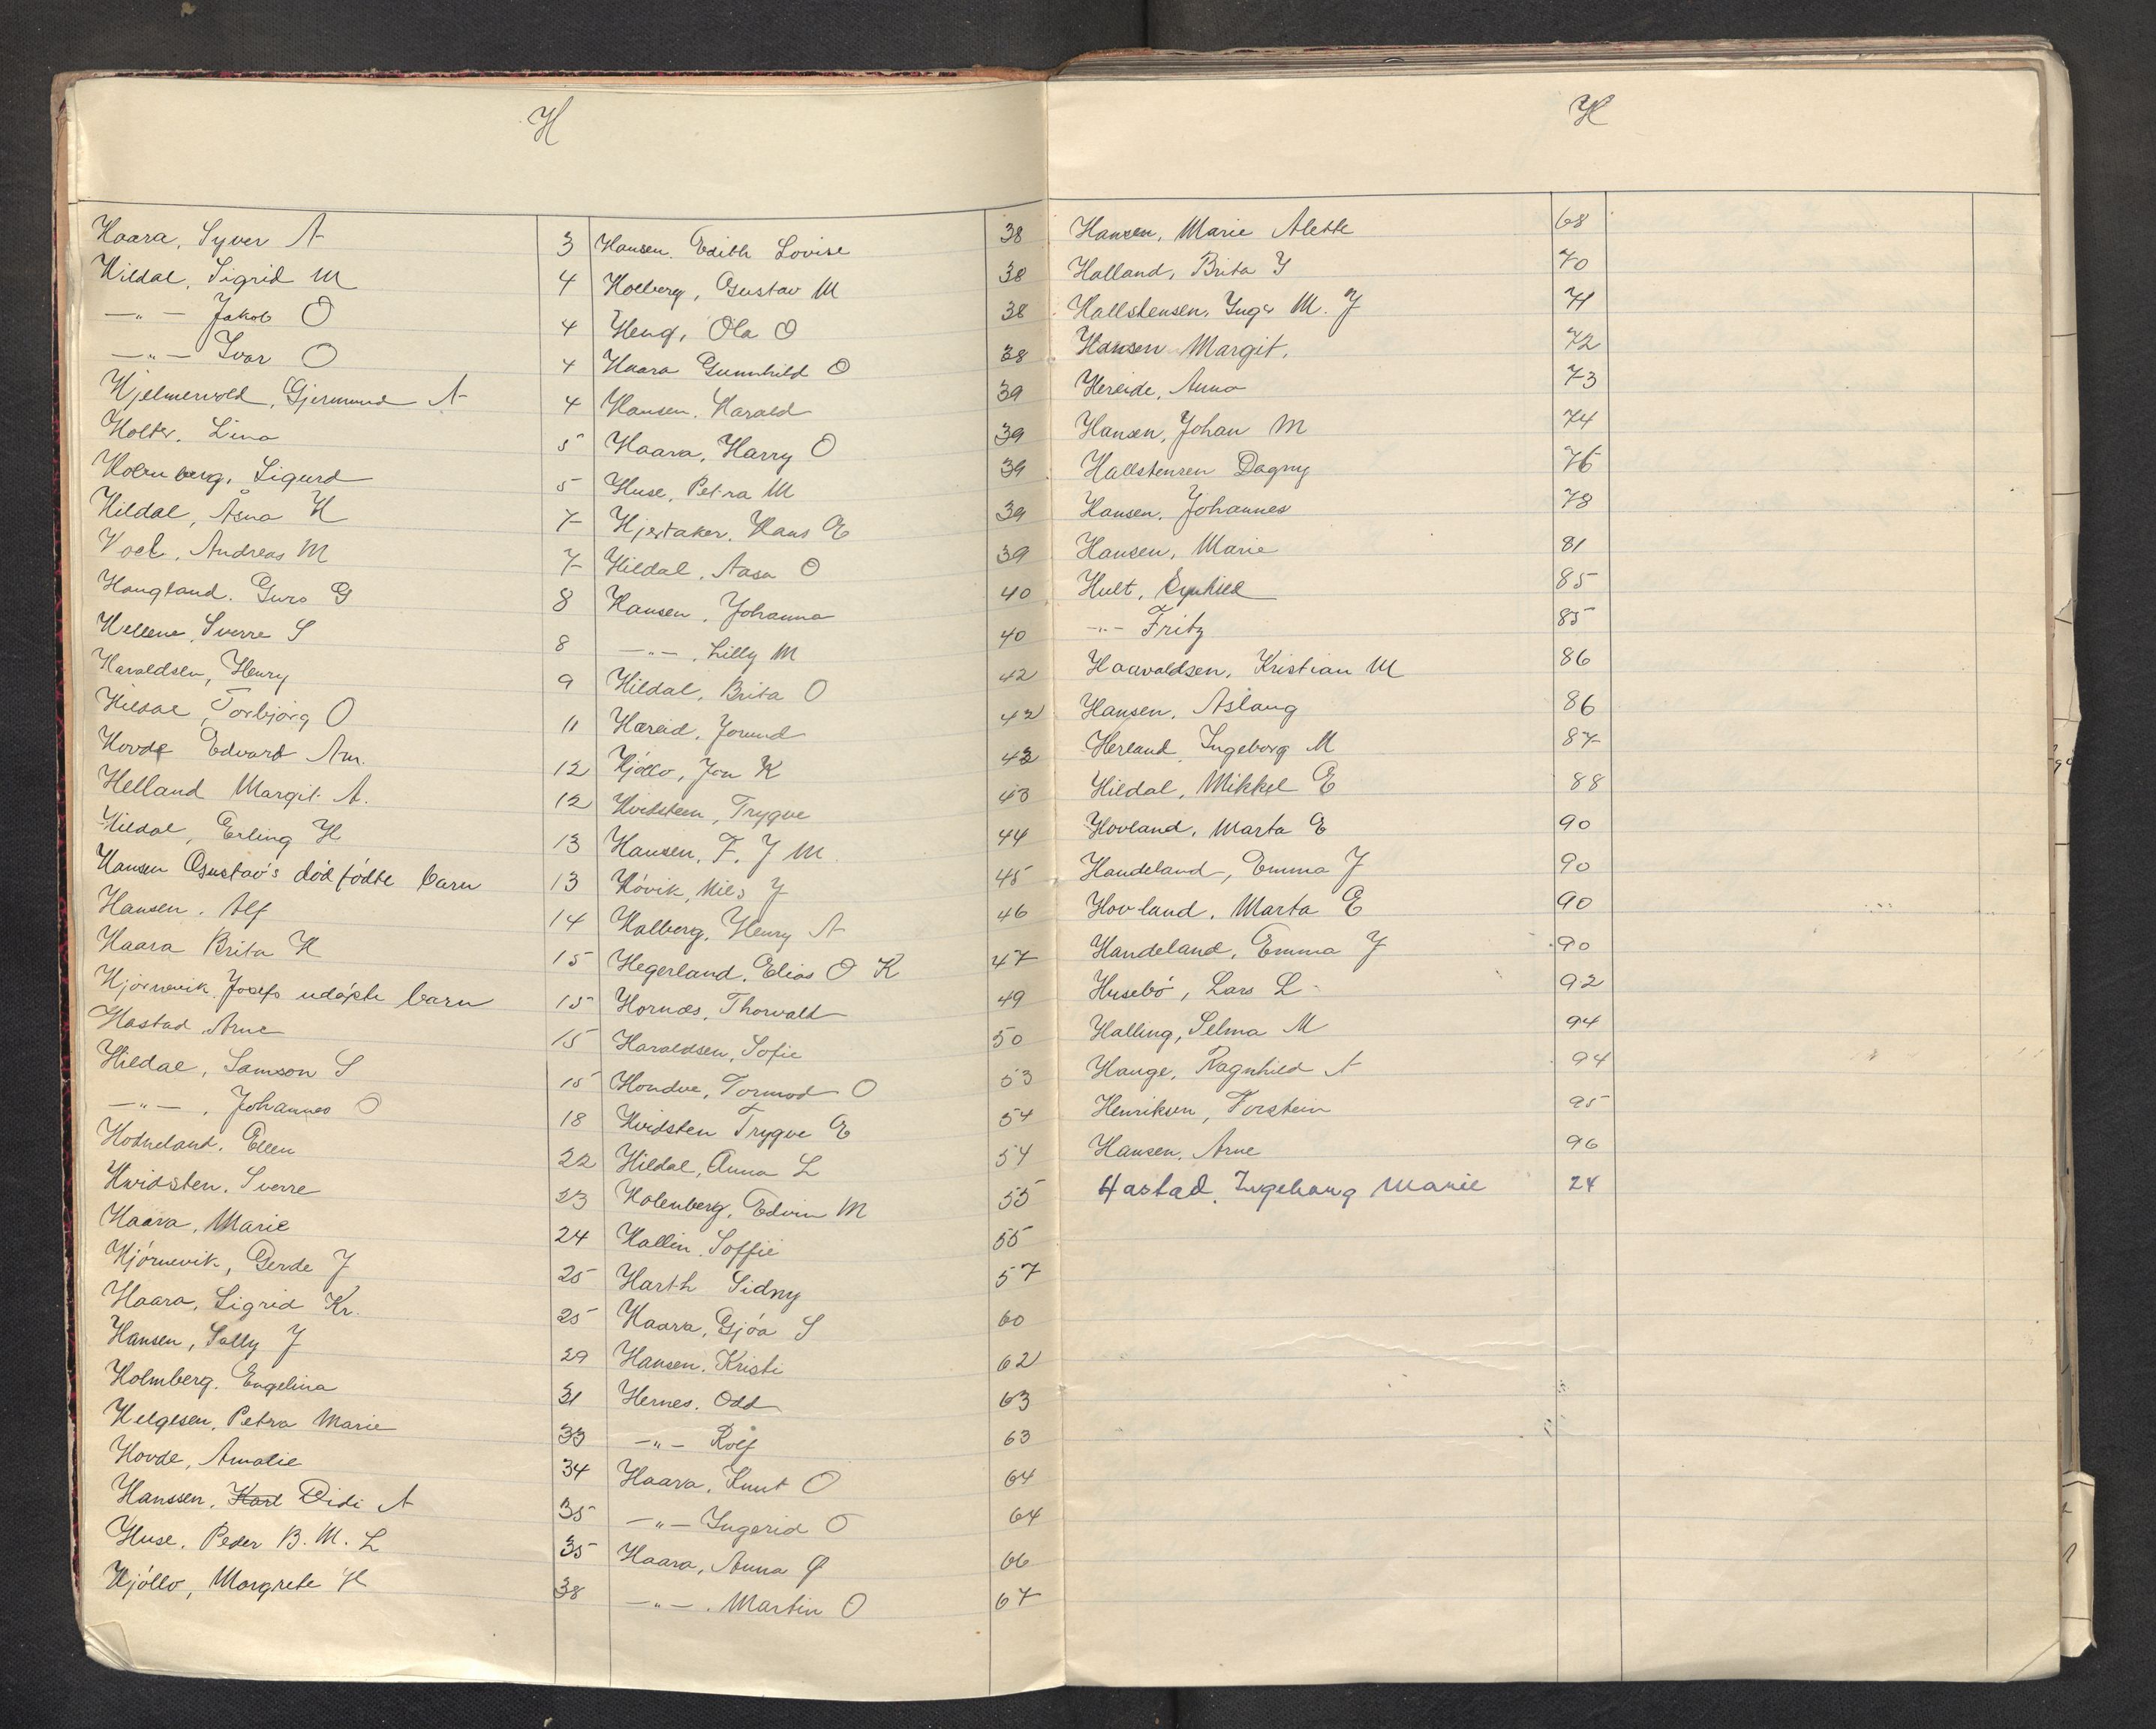 H
Haara, Syver A 3
Hildal, Sigrid M 4
—"— Jakob O 4
—"— Ivar O 4
Hjelmevold, Gjermund A 4
Holter, Lina 5
Sigurd 5
Hildal, Åsna H 7
Andreas M 7
Haugland, Guro G 8
Hellene, Sverre S 8
Haraldsen, Henry 9
Hildal, Torbjørg O 11
Hovde Edvard Am. 12
Helland Margit A. 12
Hildal, Erling H 13
Hansen Gustav's dødfødte barn 13
Hansen, Alf 14
Haara Brita K 15
Hjørnevik, Josefs udøpte barn 15
Hastad, Arne 15
Hildal, Samson S 15
—"—, Johannes O 18
Hodneland, Ellen 22
Hvidsten, Sverre 23
Haara, Marie 24
Hjørnevik, Gerde J 25
Haara, Sigrid Kr. 25
Hansen, Sally J 29
Holmberg, Engelina 31
Helgesen, Petra Marie 33
Hovde, Amalie 34
Hanssen, Karl Didi A 35
Huse, Peder B. M. L 35
Hjøllo, Margrete H 38
Hansen, Edith Lovise 38
Holberg, Gustav M 38
Heng, Ola O 38
Haara Gunnhild O 38
Hansen, Harald 39
Haara, Harry O 39
Huse, Petra M 39
Hjertaker, Hans E 39
Hildal, Aasa O 39
Hansen, Johanna 40
—"—, Lilly M 40
Hildal, Brita O 42
Hæreid, Jorund 42
Hjøllo, Jon K 42
Hvidsteen, Trygve 43
Hansen, F. J M. 44
Høvik, Nils J 45
Halberg, Henry A 46
Hegerland, Elias O K 47
Hornæs, Thorvald 49
Haraldsen, Sofie 50
Hondve, Tormod O 53
Hvidsten Trygve E 54
Hildal, Anna L 54
Holenberg, Edvin M 55
Hallin, Soffie 55
Harth Sidny 57
Haara, Gjøa S 60
Hansen, Kristi 62
Hernes, Odd 63
—"— Rolf 63
Haara, Knut O 64
—"— Ingerid O 64
Haara, Anna O 66
—"—, Martin O 67
H
Hansen, Marie Alette 68
Halland, Brita J 70
Hallstensen, Inga M. J 71
Hansen Margit, 72
Hereide, Anna 73
Hansen, Johan M 74
Hallstensen Dagny 76
Hansen, Johannes 78
Hansen, Marie 81
Hult, 85
—"— Fritz 85
Haavaldsen, Kristian M 86
Hansen, Åslaug 86
Herland, Ingeborg M 87
Hildal, Mikkel E 88
Hovland, Marta E 90
Handeland, Emma J 90
Hovland, Marta E 90
Handeland, Emma J 90
Husebø, Lars L 92
Halling, Selma M 94
Hauge, Ragnhild A 94
Henriksen, Torstein 95
Hansen, Arne 96
Hastad, Ingeborg Marie 24